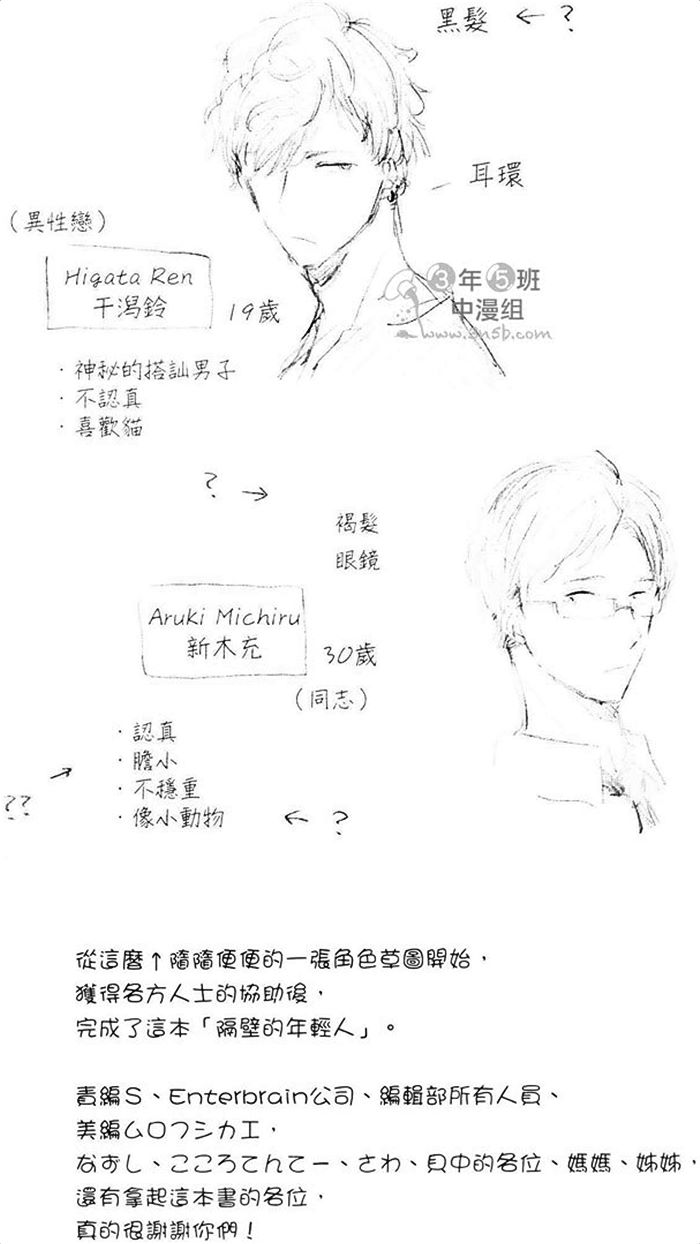 黑髮 ← ?
耳環
(異性戀)
Higata Ren
干潟鈴
19歲
3年5班
中漫组
www.3n5b.com
·神秘的搭訕男子
·不認真
·喜歡貓
? →
褐髮
眼鏡
Aruki Michiru
新木充
30歲
(同志)
·認真
·膽小
·不穩重
·像小動物 ← ?
?? →
從這麼↑隨隨便便的一張角色草圖開始,
獲得各方人士的協助後,
完成了這本「隔壁的年輕人」。
責編S、Enterbrain公司、編輯部所有人員、
美編ムロフシカエ,
なおし、こころてんてー、さわ、貝中的各位、媽媽、姊姊,
還有拿起這本書的各位,
真的很謝謝你們!